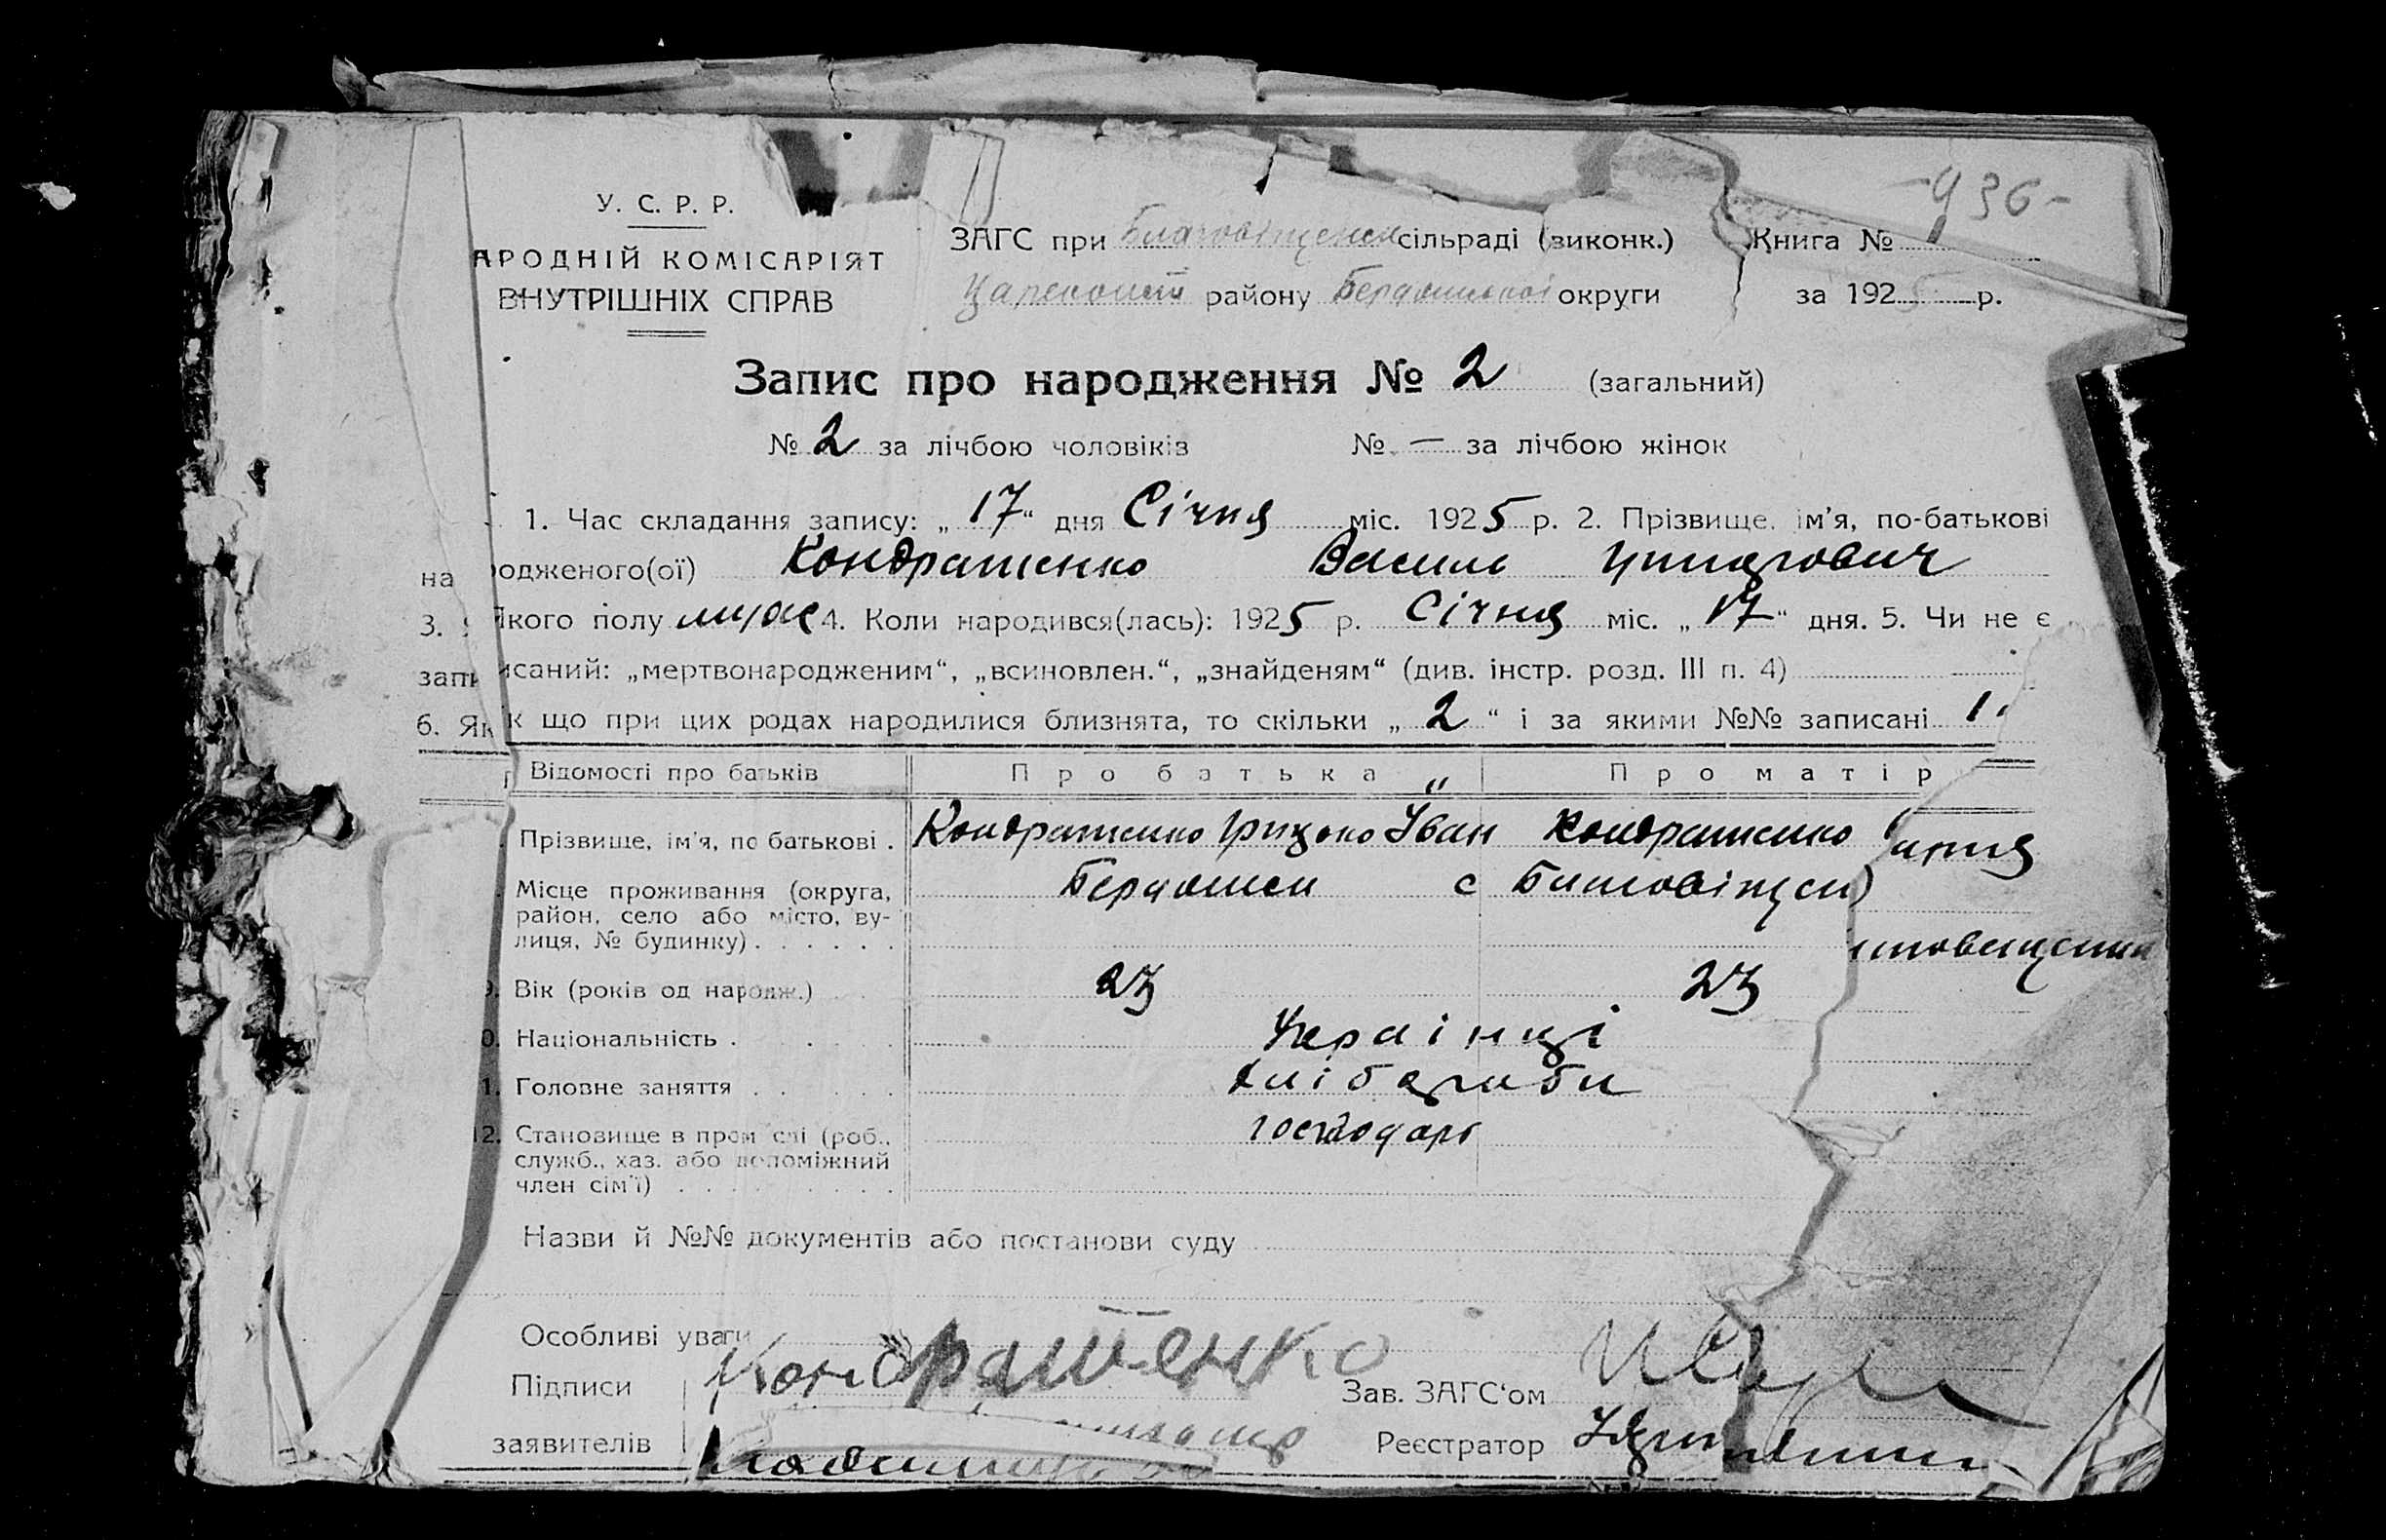 -936-
У. С. Р. Р.
АРОДНІЙ КОМІСАРІЯТ
ВНУТРІШНІХ СПРАВ
ЗАГС при Благовіщенск сільраді (виконк.)
району Бердянської округи
Книга № 1
за 1925 р.
Запис про народження № 2 (загальний)
№ 2 за лічбою чоловіків № — за лічбою жінок
1. Час складання запису: „17“ дня Січня міс. 1925 р. 2. Прізвище, ім’я, по-батькові
народженого(ої) Кондратенко Василь
3. Якого полу муж 4. Коли народився(лась): 1925 р. Січня міс. „17“ дня. 5. Чи не є
записаний: „мертвонародженим“, „всиновлен.“, „знайденям“ (див. інстр. розд. III п. 4)
6. Як що при цих родах народилися близнята, то скільки „2“ і за якими №№ записані 1
Відомості про батьків Про батька Про матір
Прізвище, ім’я, по батькові . Кондратенко Грицько Іван Кондратенко
Місце проживання (округа, Бердянск с
район, село або місто, ву-
лиця, № будинку) . . . . . .
9. Вік (років од народж.) 23 23
0. Національність . . . . Українці
1. Головне заняття . . . . Хлібороби
12. Становище в промислі (роб., господарі
служб., хаз. або допоміжний
член сім’ї) . . . . . . . .
Назви й №№ документів або постанови суду
Особливі уваги
Підписи Кондратенко Зав. ЗАГС‘ом
заявителів Реєстратор